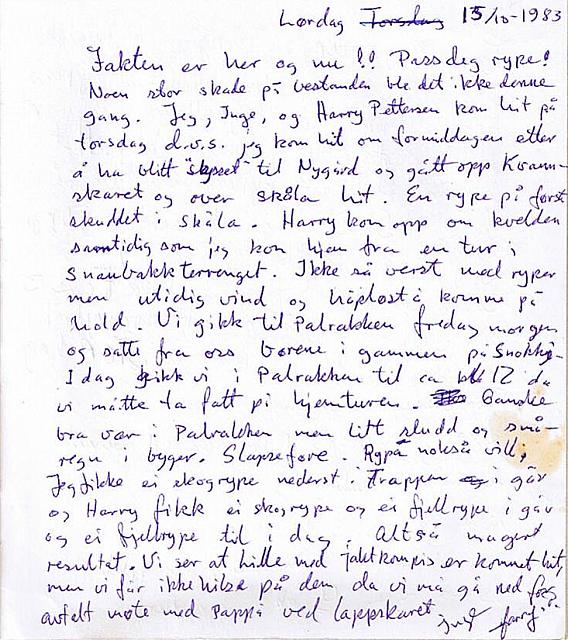 Lørdag Torsdag 15/10-1983
Jakten er her og nu !! Pass deg rype!
Noen stor skade på bestanden ble det ikke denne
gang. Jeg, Inge, og Harry Pettersen kom hit på
torsdag d.v.s. jeg kom hit om formiddagen etter
å ha blitt "skysset" til Nygård og gått opp Kvann-
skaret og over skåla hit. En rype på først
skuddet i skåla. Harry kom opp om kvelden
samtidig som jeg kom hjem fra en tur i
Snaubakkterrenget. Ikke så verst med ryper
men utidig vind og håpløst å komme på
hold. Vi gikk til Palrakken fredag morgen
og satte fra oss børene i gammen på
I dag gikk vi i Palrakken til ca kl 12 da
vi måtte ta fatt på hjemturen. Ganske
bra vær i Palrakken men litt sludd og små-
regn i byger. Slapseføre. Rypa nokså vill,
Jeg fikk ei skogrype nederst i Trappen i går
og Harry fikk ei skogrype og ei fjellrype i går
og ei fjellrype til i dag. Altså magert
resultat. Vi ser at hille med jaktkompis er kommet hit,
men vi får ikke hilse på dem da vi må gå ned for
avtalt møte med pappa ved lappskaret